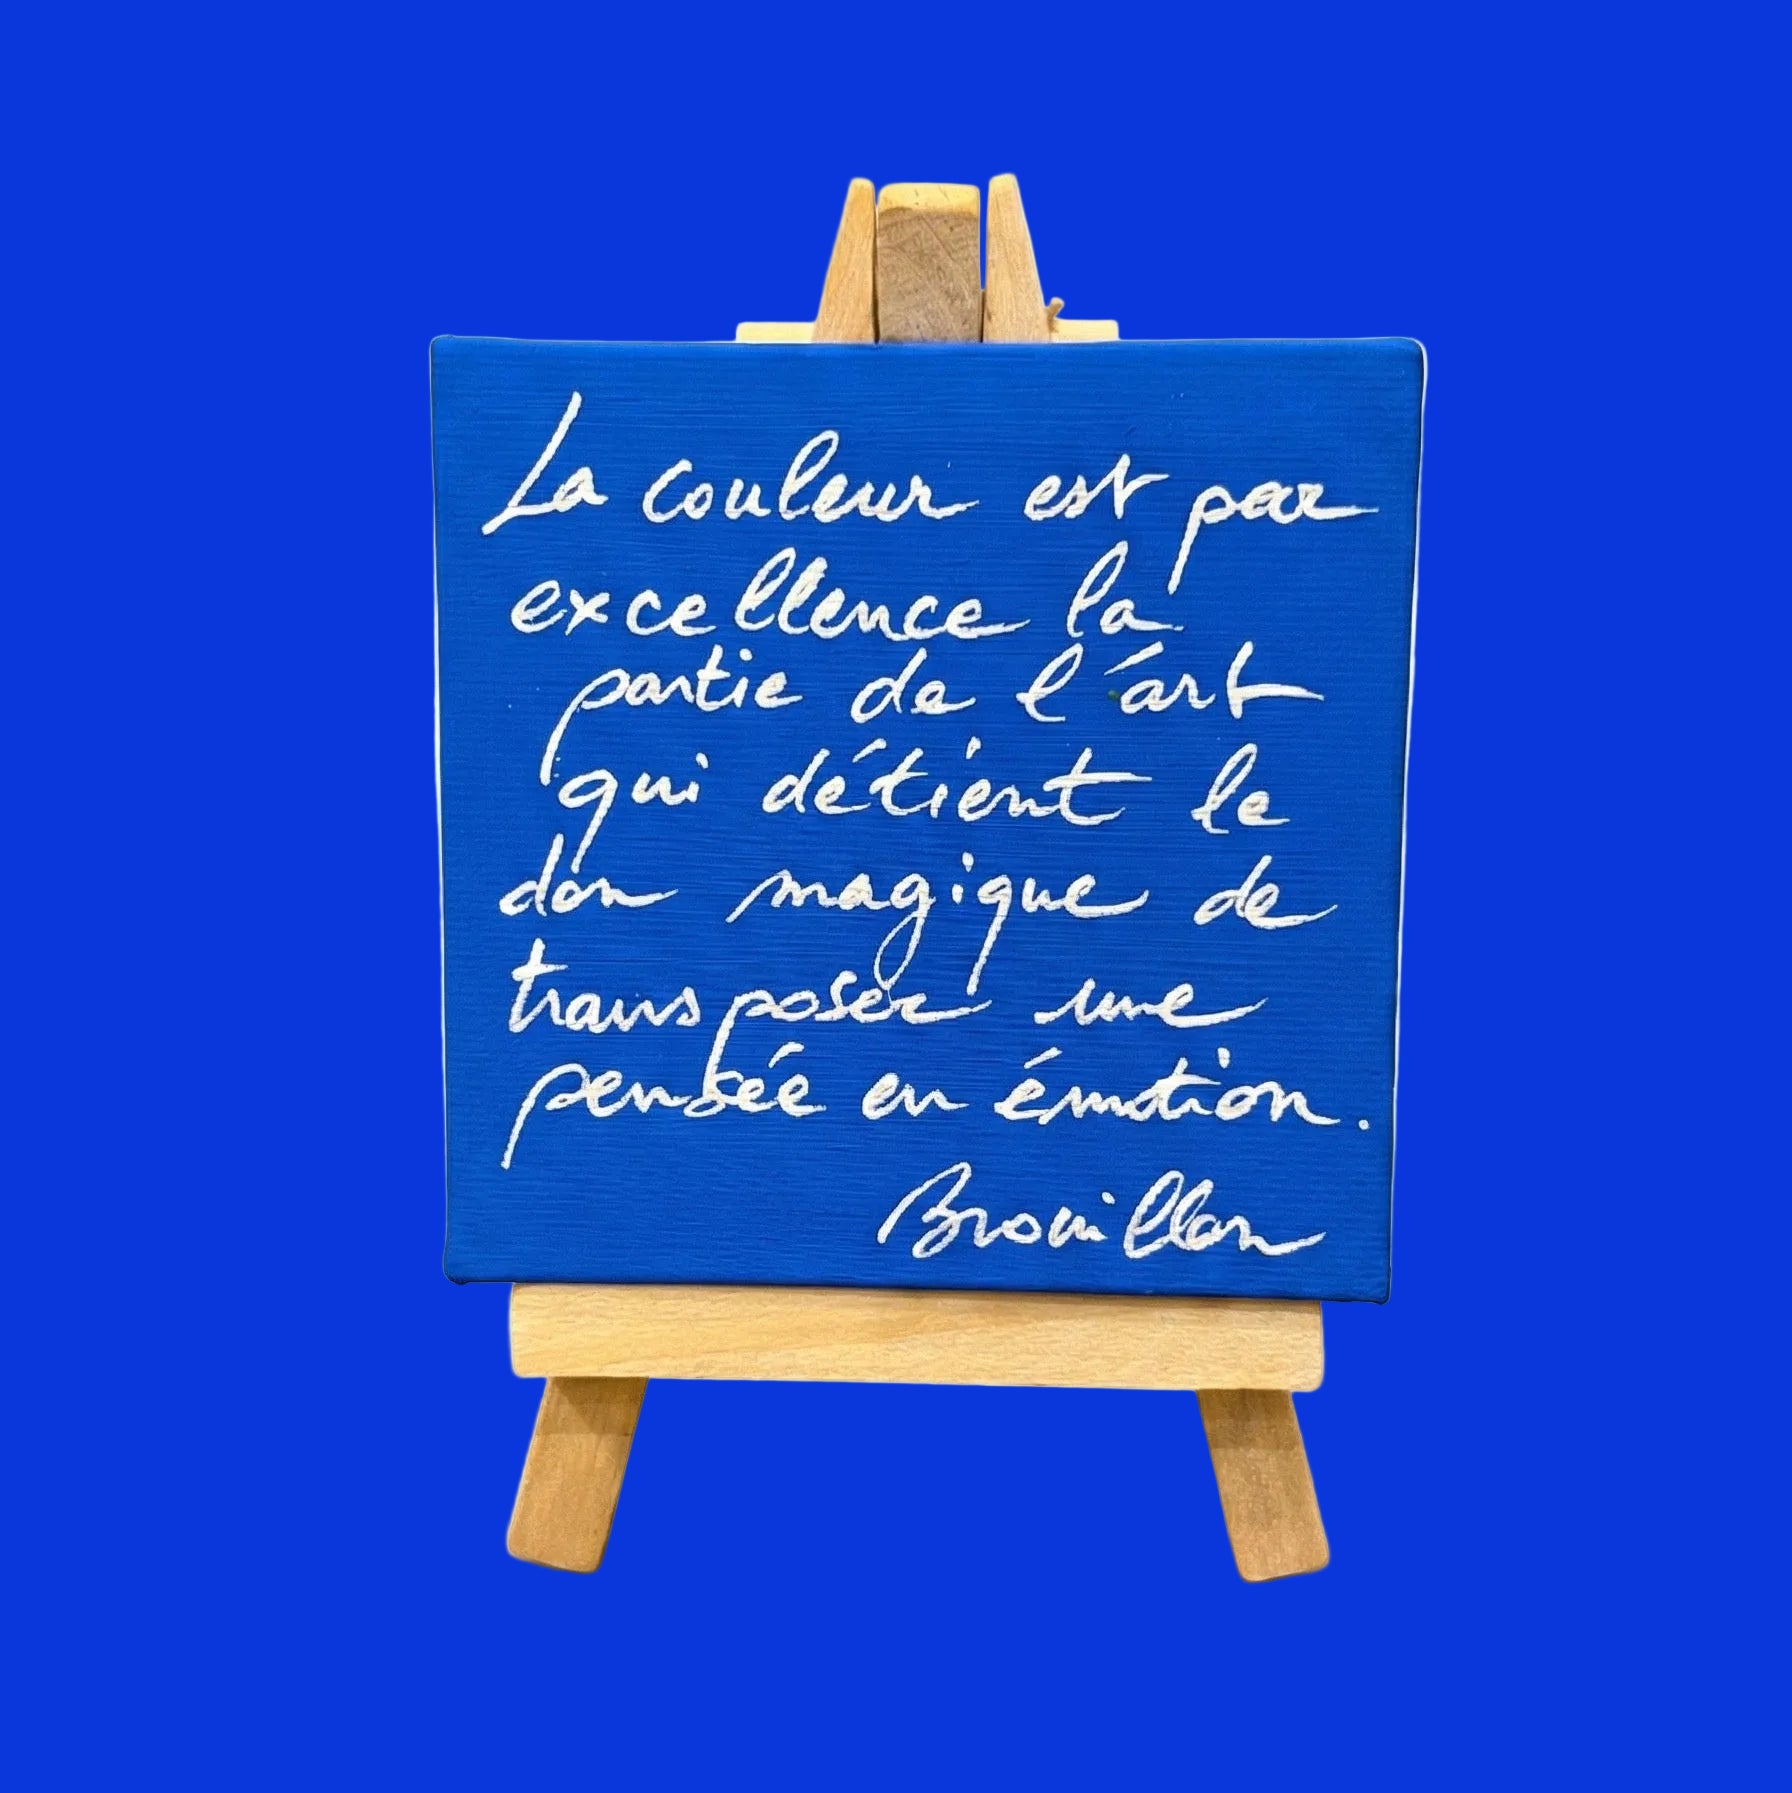 La couleur est par
excellence la
partie de l'art
qui détient le
don magique de
transposer une
pensée en émotion.
Brouillon